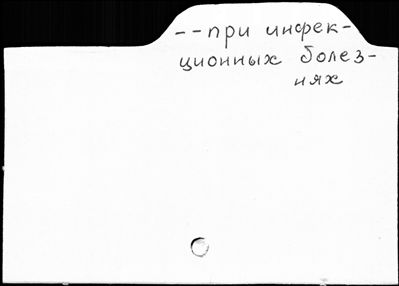 --при инфек-
ционных болез-
нях